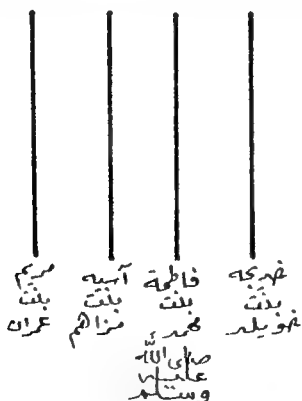 خديجه
بنت
خويلد
فاطمة
بنت
محمد
صلى الله
عليه
وسلم
آسيه
بنت
مزاهم
مريم
بنت
عمران